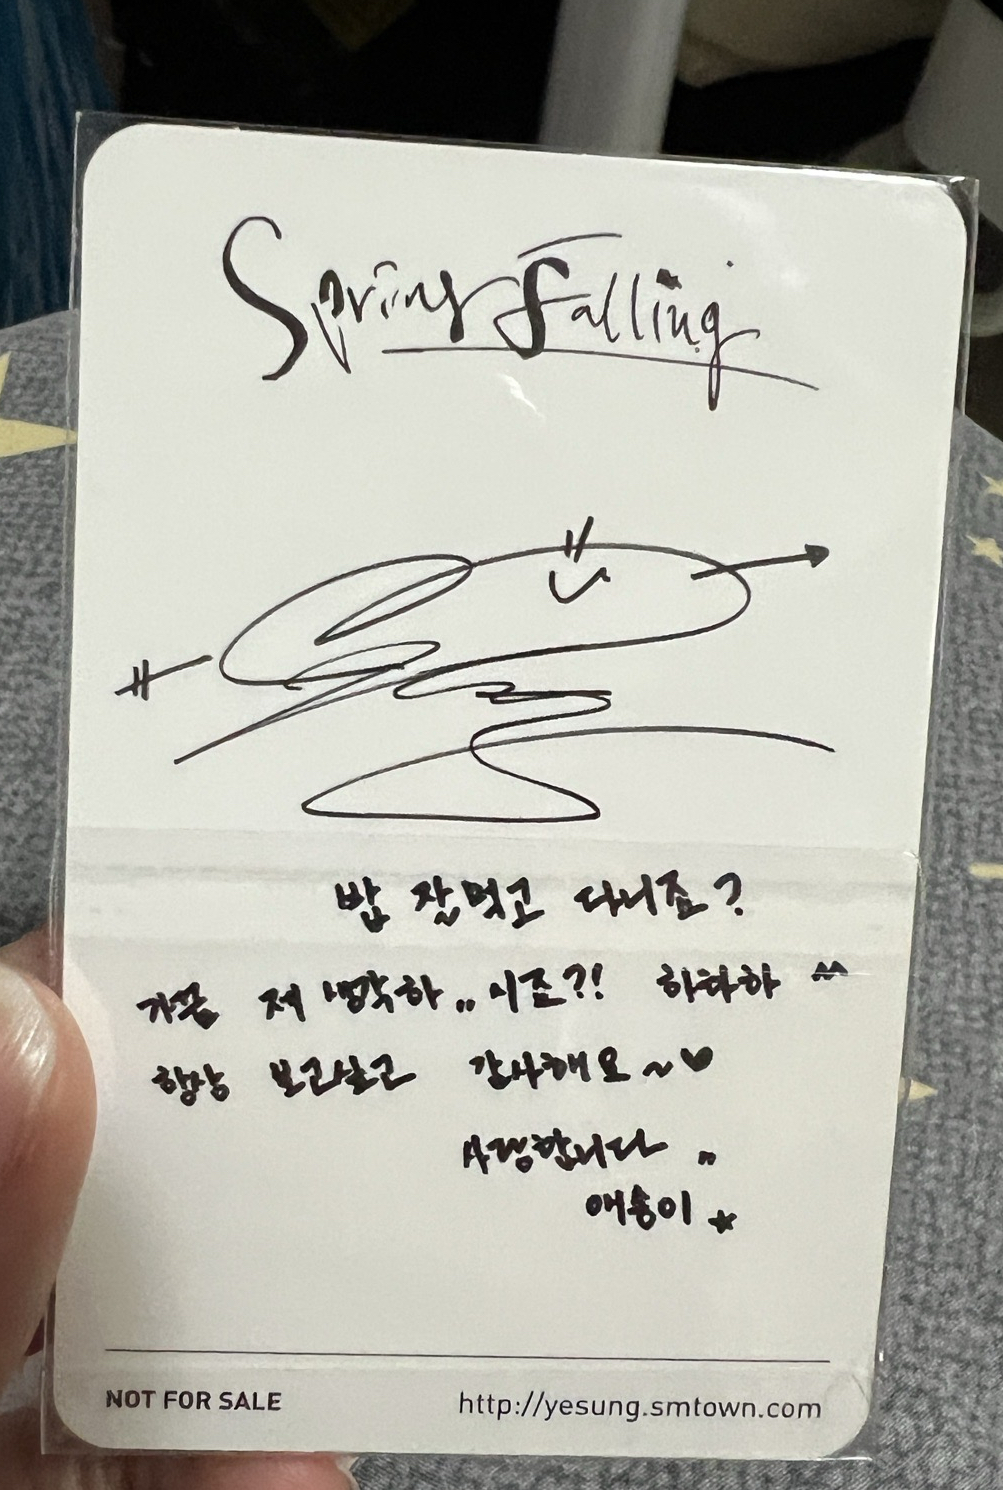 Spring Falling
밥 잘먹고 다니죠?
가끔 저 생각하..시죠?! 하하하 ^^
항상 보고싶고 감사해요~♥
사랑합니다 ..
예성이 ★
NOT FOR SALE
http://yesung.smtown.com